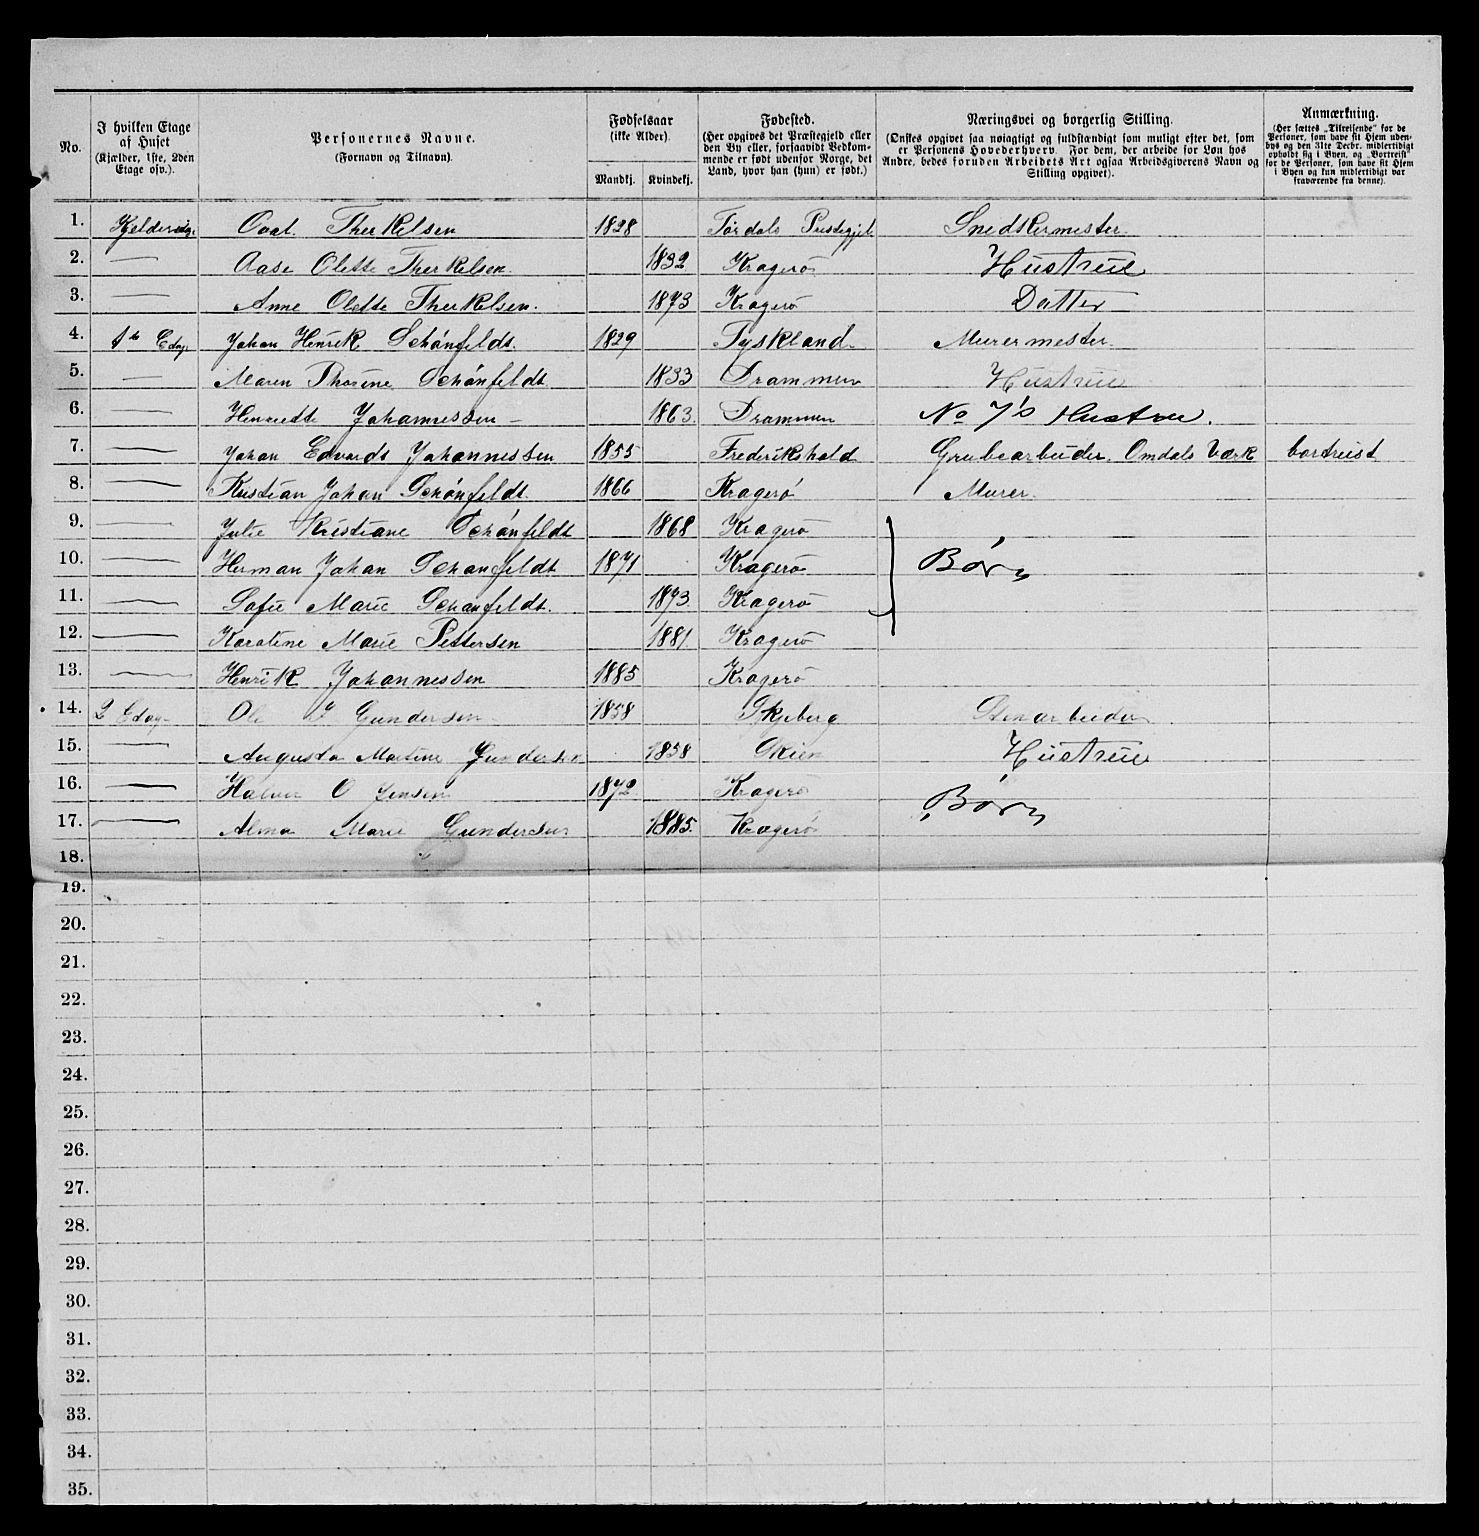 No.
I hvilken Etage af Huset
(Kjælder, 1ste, 2den Etage osv.).
Personernes Navne.
(Fornavn og Tilnavn).
Fødselsaar
(ikke Alder).
Mandkj. Kvindekj.
Fødested.
(Her opgives det Præstegjeld eller den By eller, forsaavidt Vedkommende er født udenfor Norge, det Land, hvor han (hun) er født.)
Næringsvei og borgerlig Stilling.
(Ønskes opgivet saa nøiagtigt og fuldstændigt som muligt efter det, som er Personens Hovederhverv. For dem, der arbeide for Løn hos Andre, bedes foruden Arbeidets Art ogsaa Arbeidsgiverens Navn og Stilling opgivet).
Anmærkning.
(Her sættes „Tilreisende“ for de Personer, som have sit Hjem udenbys og den 31te Decbr. midlertidigt opholdt sig i Byen, og „Bortreist“ for de Personer, som have sit Hjem i Byen og kun midlertidigt var fraværende fra denne).
1. Therkelsen 1828 Tørdals Snedkermester
2. — Aase Olette Therkelsen. 1832 Kragerö Hustrue
3. — Anne Olette Therkelsen. 1873 Kragerö Datter
4. 1ste Etag. Johan Henrik Schönfeldt. 1829 Tyskland Murermester
5. — Maren Thorine Schönfeldt 1833 Drammen Hustrue
6. — Henriette Johannessen — 1863. Drammen No 7's Hustru.
7. — Johan Edvardt Johannessen 1855 Frederikshald Grubearbeider Omdals Værk bortreist
8. — Kristian Johan Schönfeldt. 1866 Kragerö Murer.
9. — Julie Kristiane Schönfeldt 1868 Kragerö
10. — Herman Johan Schønfeldt 1871 Kragerö Børn
11. — Sofie Marie Schønfeldt. 1873. Kragerö
12. — Karoline Marie Pettersen 1881. Kragerö
13. — Henrik Johannessen 1885 Kragerö
14. 2 Etag— Ole Gundersen 1858 Skjeberg Stenarbeider
15. — Augusta Martine Gundersen 1858 Skien Hustrue
16. — Halvor O Jensen 1872. Kragerö Børn
17. — Alma Marie Gundersen 1885. Kragerö
18.
19.
20.
21.
22.
23.
24.
25.
26.
27.
28.
29.
30.
31.
32.
33.
34.
35.